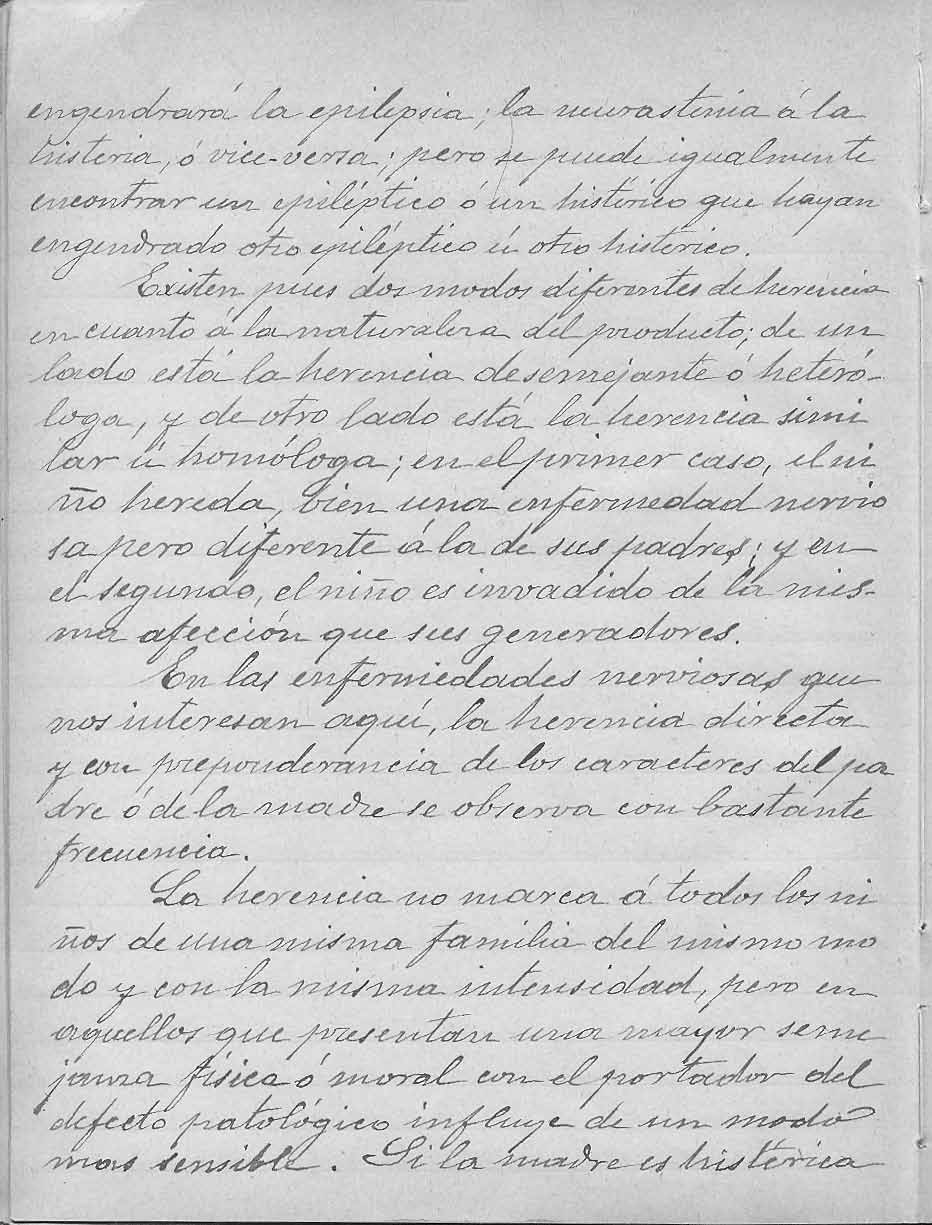 engendrará la epilepsia; la neurastenia á la
histeria, ó vice-versa; pero se puede igualmente
encontrar un epiléptico ó un histérico que hayan
engendrado otro epiléptico ú otro histérico.
Existen pues dos modos diferentes de herencia
en cuanto á la naturaleza del producto; de un
lado está la herencia desemejante ó heteró-
loga, y de otro lado está la herencia simi
lar ú homóloga; en el primer caso, el ni
ño hereda, bien una enfermedad nervio
sa pero diferente á la de sus padres; y en
el segundo, el niño es invadido de la mis-
ma afección que sus generadores.
En las enfermedades nerviosas que
nos interesan aquí, la herencia directa
y con preponderancia de los caracteres del pa
dre ó de la madre se observa con bastante
frecuencia.
La herencia no marca á todos los ni
ños de una misma familia del mismo mo
do y con la misma intensidad, pero en
aquellos que presentan una mayor seme
janza física ó moral con el portador del
defecto patológico influye de un modo
mas sensible. Si la madre es histérica